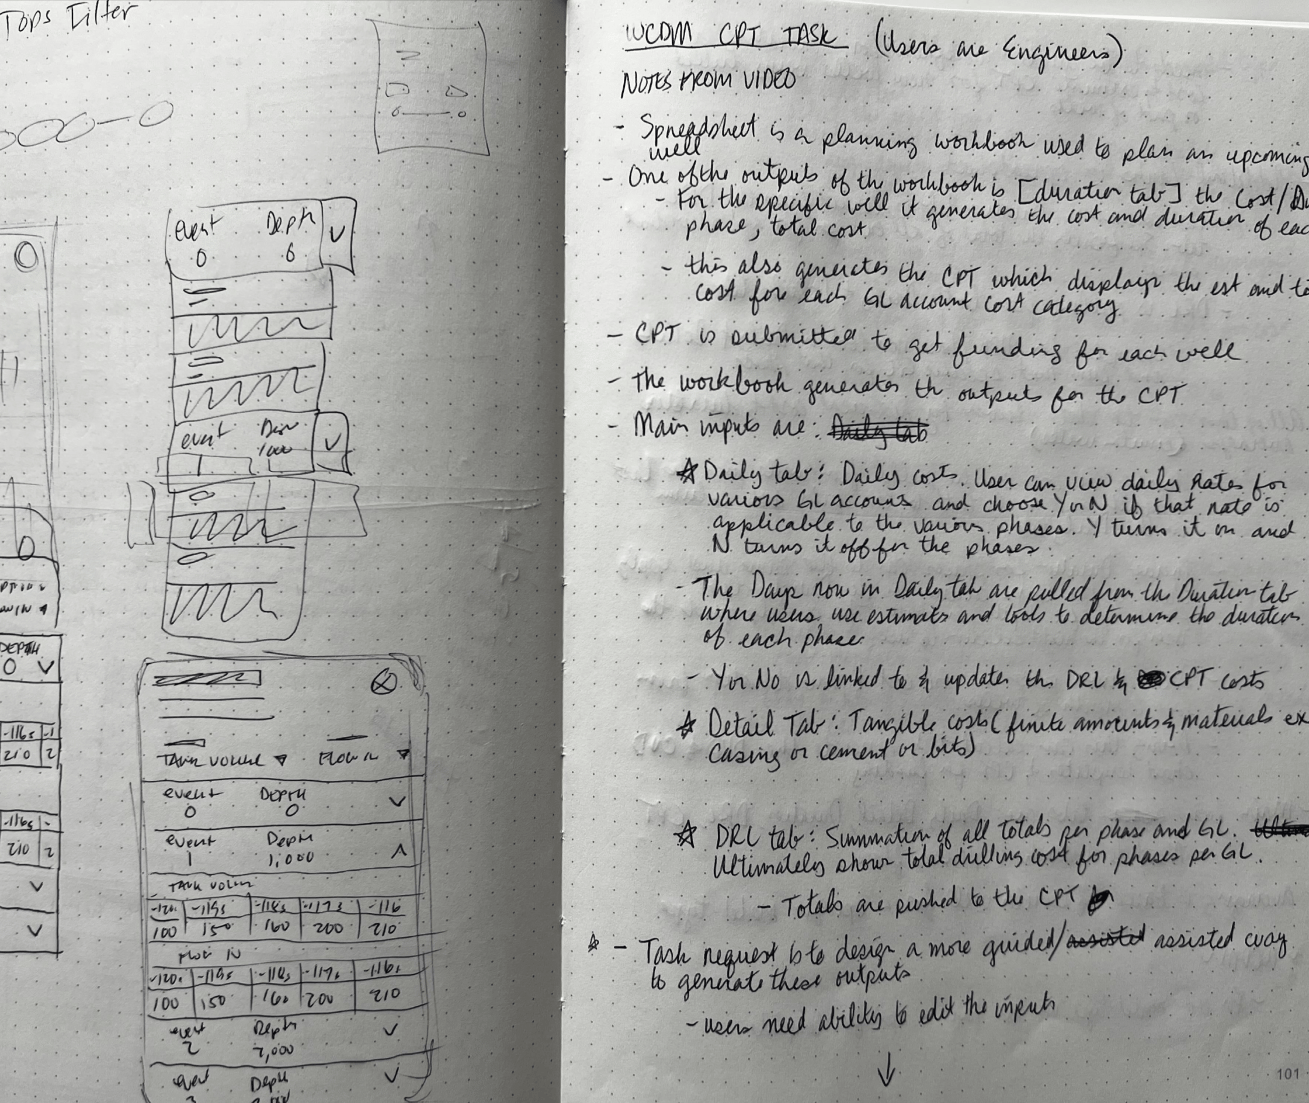 Tops Filter
event Depth
0 6
event
1000
1
OPTIONS
DEPTH
0
-116s -1
210 2
-116s -
210 2
TANK VOLUME FLOW IN
event DEPTH
0 0
event Depth
1 1,000
TANK VOLUM
-120s -119s -118s -117s -116
100 150 160 200 210
FLOW IN
-120s -119s -118s -117s -116s
100 150 160 200 210
event Depth
2 2,000
event Depth
WCDM CPT TASK (Users are Engineers)
NOTES FROM VIDEO
- Spreadsheet is a planning workbook used to plan an upcoming
well
- One of the outputs of the workbook is [duration tab] the Cost/Du
- For the specific well it generates the cost and duration of eac
phase, total cost
- this also generates the CPT which displays the est and to
cost for each GL account cost category
- CPT is submitted to get funding for each well
- The workbook generates th outputs for the CPT
- Main inputs are: Daily tab
☆ Daily tab: Daily costs. User can view daily rates for
various GL accounts and choose Y or N if that rate is
applicable to the various phases. Y turns it on and
N turns it off for the phases.
- The Days row in Daily tab are pulled from the Duration tab
where users use estimates and tools to determine the duration
of each phase
- Y or No is linked to & updates the DRL & CPT costs
☆ Detail Tab: Tangible costs (finite amounts & materials ex
casing or cement or bits)
☆ DRL tab: Summation of all Totals per phase and GL.
Ultimately shows total drilling cost for phases per GL.
- Totals are pushed to the CPT
☆ - Task request is to design a more guided/assisted assisted way
to generate these outputs
- users need ability to edit the inputs
↓
101